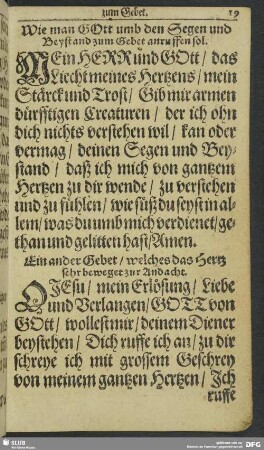 zum Gebet. 19
Wie man GOtt umb den Segen und
Beystand zum Gebet anruffen sol.
MEin HERR und GOtt / das
Liecht meines Hertzens / mein
Stärck und Trost / Gib mir armen
dürfftigen Creaturen / der ich ohn
dich nichts verstehen wil / kan oder
vermag / deinen Segen und Bey-
stand / daß ich mich von gantzem
Hertzen zu dir wende / zu verstehen
und zu fühlen / wie süß du seyst in al-
lem / was du umb mich verdienet / ge-
than und gelitten hast / Amen.
Ein ander Gebet / welches das Hertz
sehr beweget zur Andacht.
O JEsu / mein Erlösung / Liebe
und Verlangen / GOTT von
GOtt / wollest mir / deinem Diener
beystehen / Dich ruffe ich an / zu dir
schreye ich mit grossem Geschrey
von meinem gantzen Hertzen / Jch
ruffe
SLUB
DFG